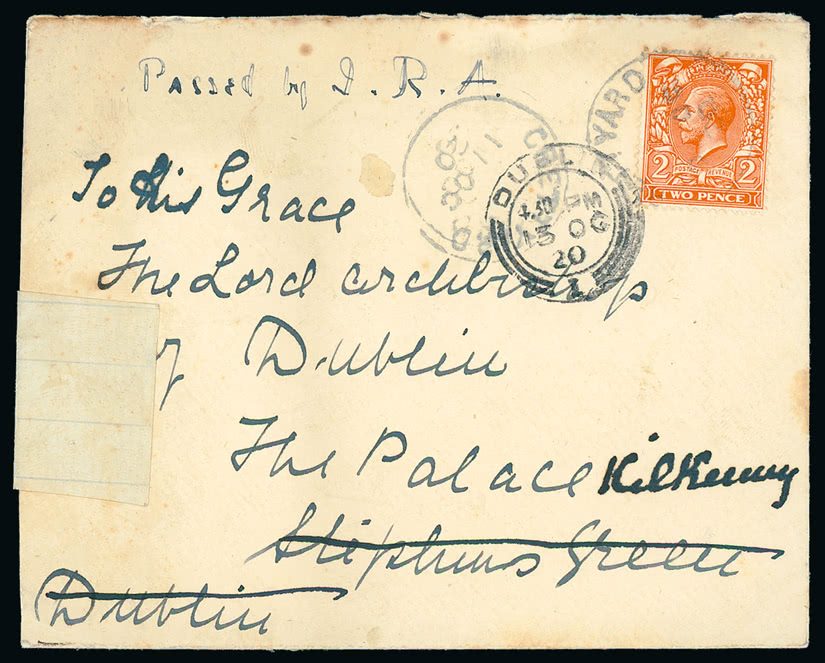 Passed by I.R.A.
To His Grace
The Lord Archbishop
of Dublin
The Palace Kilkenny
Stephens Green
Dublin
YARD
DUBLIN
4.30 PM
13 OC
20
1
2 POSTAGE REVENUE 2
TWO PENCE